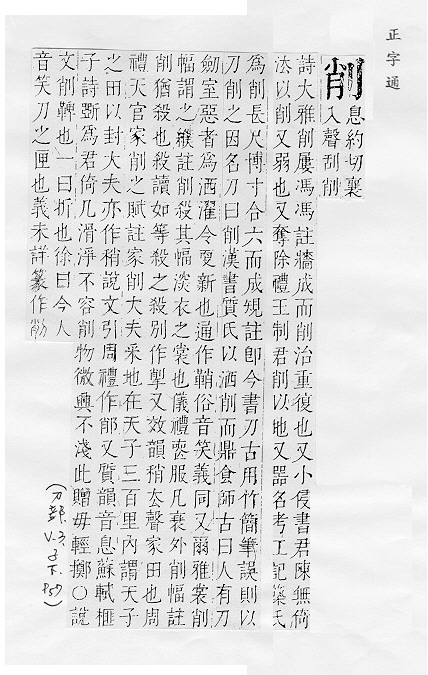 正字通
削
息約切襄
入聲刮削
詩大雅削屢馮馮註牆成而削治重復也又小侵書君陳無倚
法以削又弱也又奪除禮王制君削以地又器名考工記築氏
為削長尺博寸合六而成規註卽今書刀古用竹簡筆誤則以
刀削之因名刀曰削漢書質氏以洒削而鼎食師古曰人有刀
劒室惡者為洒濯令更新也通作鞘俗音笑義同又爾雅裳削
幅謂之纀註削殺其幅深衣之裳也儀禮喪服凡衰外削幅註
削猶殺也殺讀如等殺之殺別作㓷又效韻稍去聲家田也周
禮天官家削之賦註家削大夫采地在天子三百里內謂天子
之田以封大夫亦作稍說文引周禮作䣃又質韻音息蘇軾榧
子詩斲為君倚几滑淨不容削物微興不淺此贈毋輕擲○說
文削鞞也一曰析也徐曰今人
音笑刀之匣也義未詳篆作
(刀部,